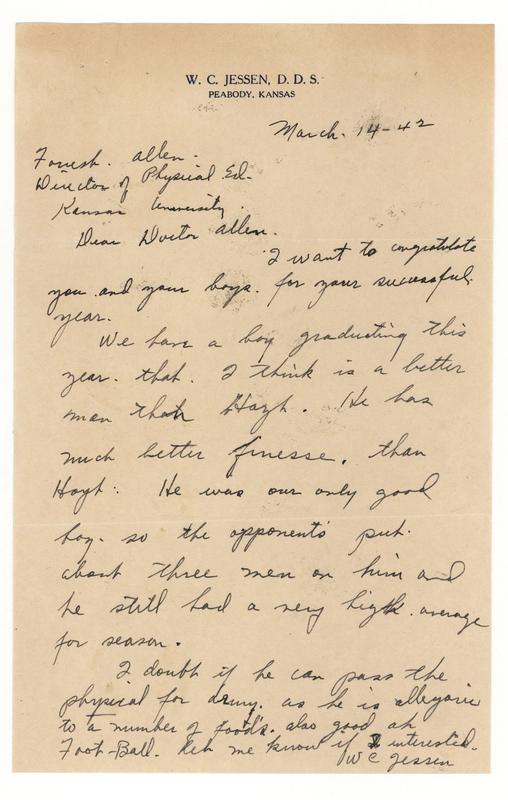 W. C. JESSEN, D. D. S.
PEABODY, KANSAS
March. 14-42
Forrest. Allen.
Director of Physical Ed-
Kansas University.
Dear Doctor Allen.
I want to congratulate
you and your boys. for your successful.
year.
We have a boy graduating this
year. that. I think is a better
man than Hoyt. He has
much better finesse. than
Hoyt. He was our only good
boy. so the opponents put.
about three men on him and
he still had a very high. average
for season.
I doubt if he can pass the
physical for army. as he is allegaric
to a number of foods. also good at
Foot-Ball. Let me know if interested.
W C Jessen